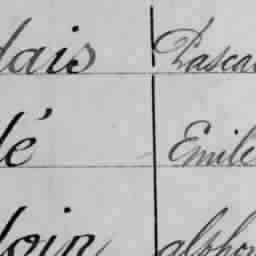 dais Pasca
lé Emile
doin alphon